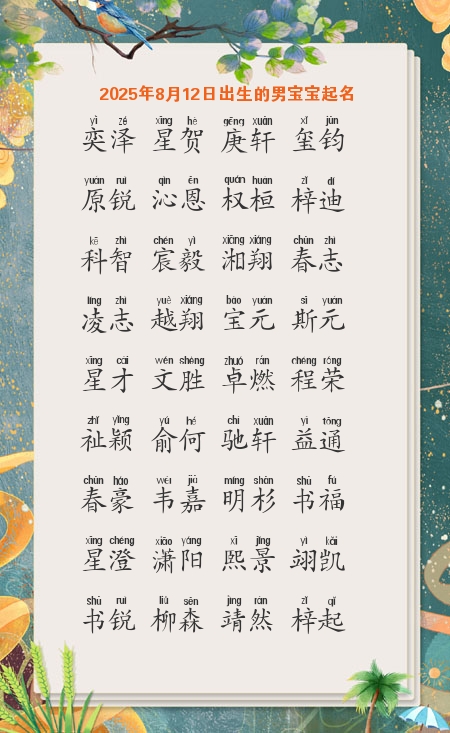 2025年8月12日出生的男宝宝起名
yì zé xīng hè gēng xuān xǐ jūn
奕泽 星贺 庚轩 玺钧
yuán ruì qìn ēn quán huán zǐ dí
原锐 沁恩 权桓 梓迪
kē zhì chén yì xiāng xiáng chūn zhì
科智 宸毅 湘翔 春志
líng zhì yuè xiáng bǎo yuán sī yuán
凌志 越翔 宝元 斯元
xīng cái wén shèng zhuó rán chéng róng
星才 文胜 卓燃 程荣
zhǐ yǐng yú hé chí xuān yì tōng
祉颖 俞何 驰轩 益通
chūn háo wéi jiā míng shān shū fú
春豪 韦嘉 明杉 书福
xīng chéng xiāo yáng xī jǐng yì kǎi
星澄 潇阳 熙景 翊凯
shū ruì liǔ sēn jìng rán zǐ qǐ
书锐 柳森 靖然 梓起